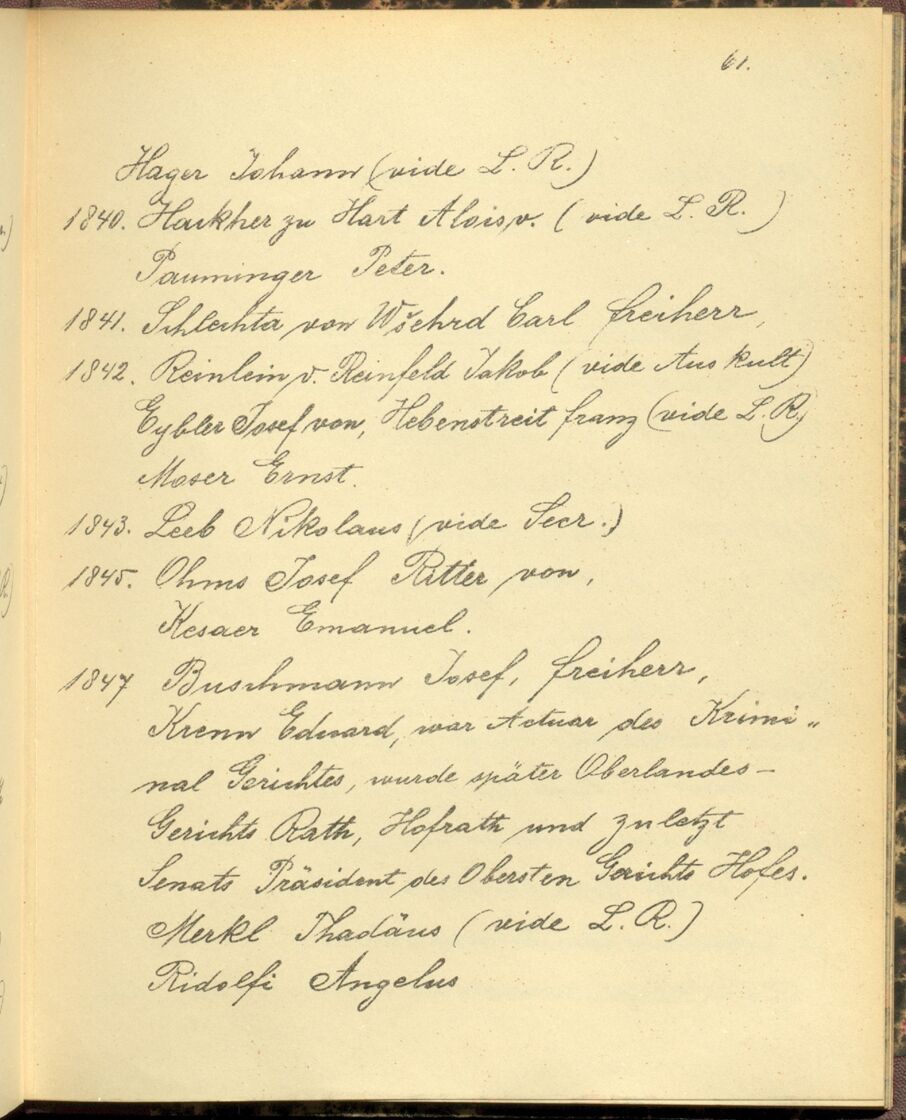 61.
Hager Johann (vide L. R.)
1840. Hackher zu Hart Alois v. (vide L. R.)
Pauminger Peter.
1841. Schlechta von Wšehrd Carl freiherr,
1842. Reinlein v. Reinfeld Jakob (vide Auskult)
Eybler Josef von, Hebenstreit franz (vide L. R.)
Moser Ernst.
1843. Leeb Nikolaus (vide Secr.)
1845. Ohms Josef Ritter von,
Kesaer Emanuel.
1847 Buschmann Josef, freiherr,
Krenn Eduard, war Actuar des Krimi"
nal Gerichtes, wurde später Oberlandes-
Gerichts Rath, Hofrath und zuletzt
Senats Präsident des Obersten Gerichts Hofes.
Merkl Thadäus (vide L. R.)
Ridolfi Angelus